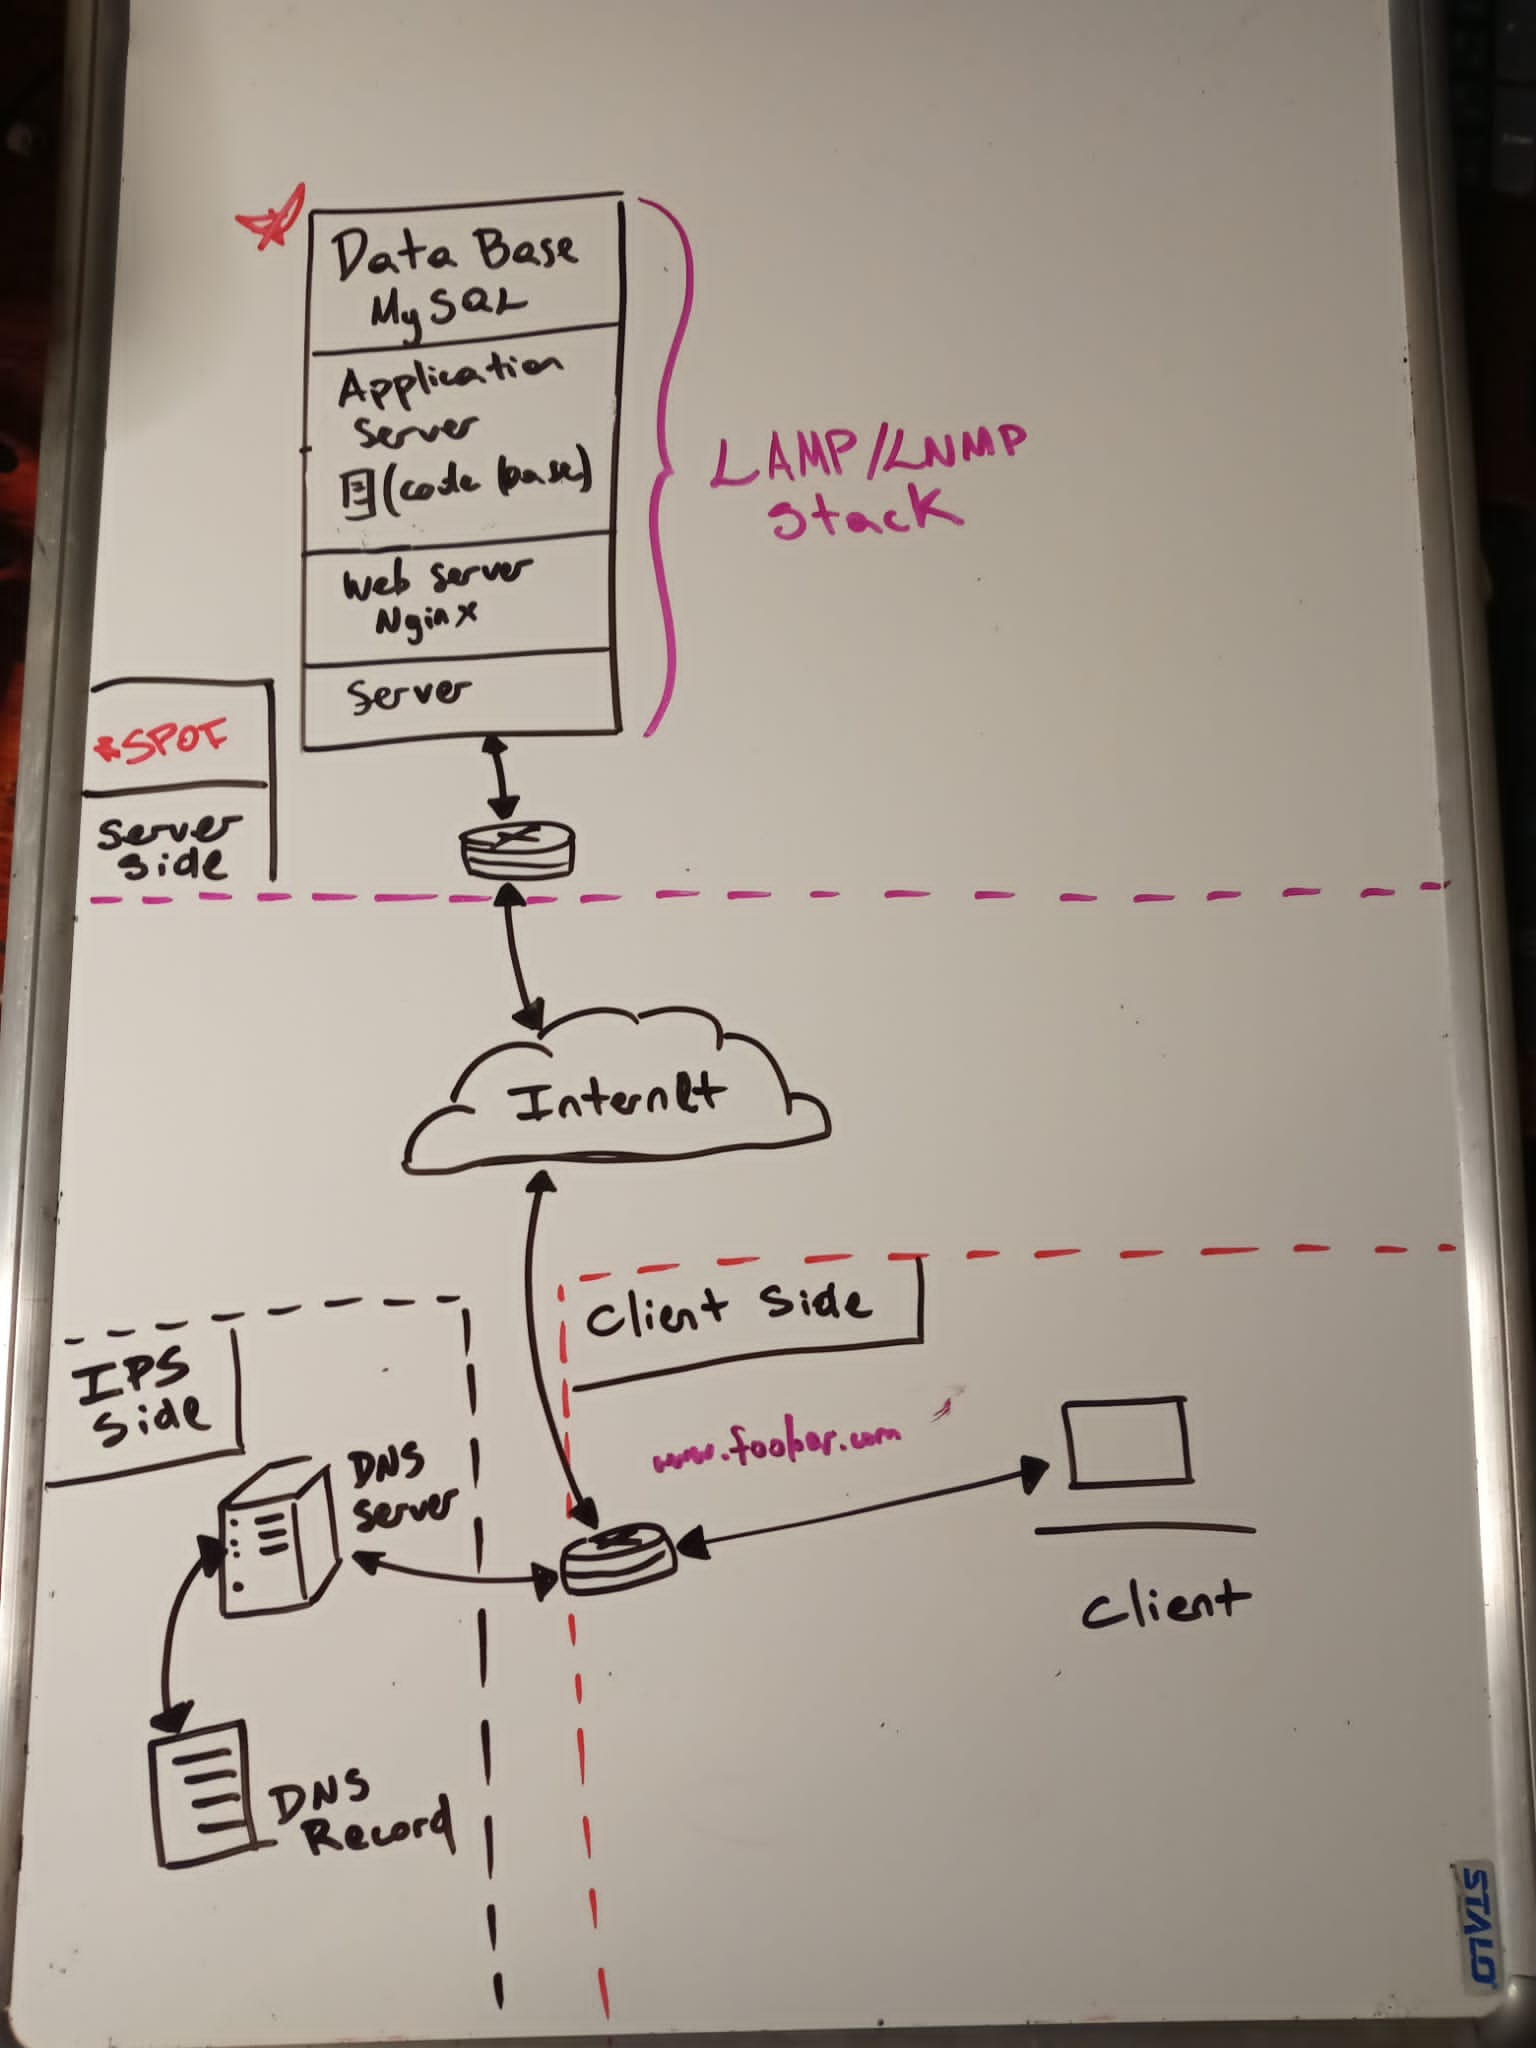 Data Base
MySQL
Application
Server
(code base)
Web Server
Nginx
Server
LAMP/LNMP
Stack
*SPOF
Server
Side
Internet
Client Side
IPS
Side
www.foobar.com
DNS
Server
Client
DNS
Record
STALO